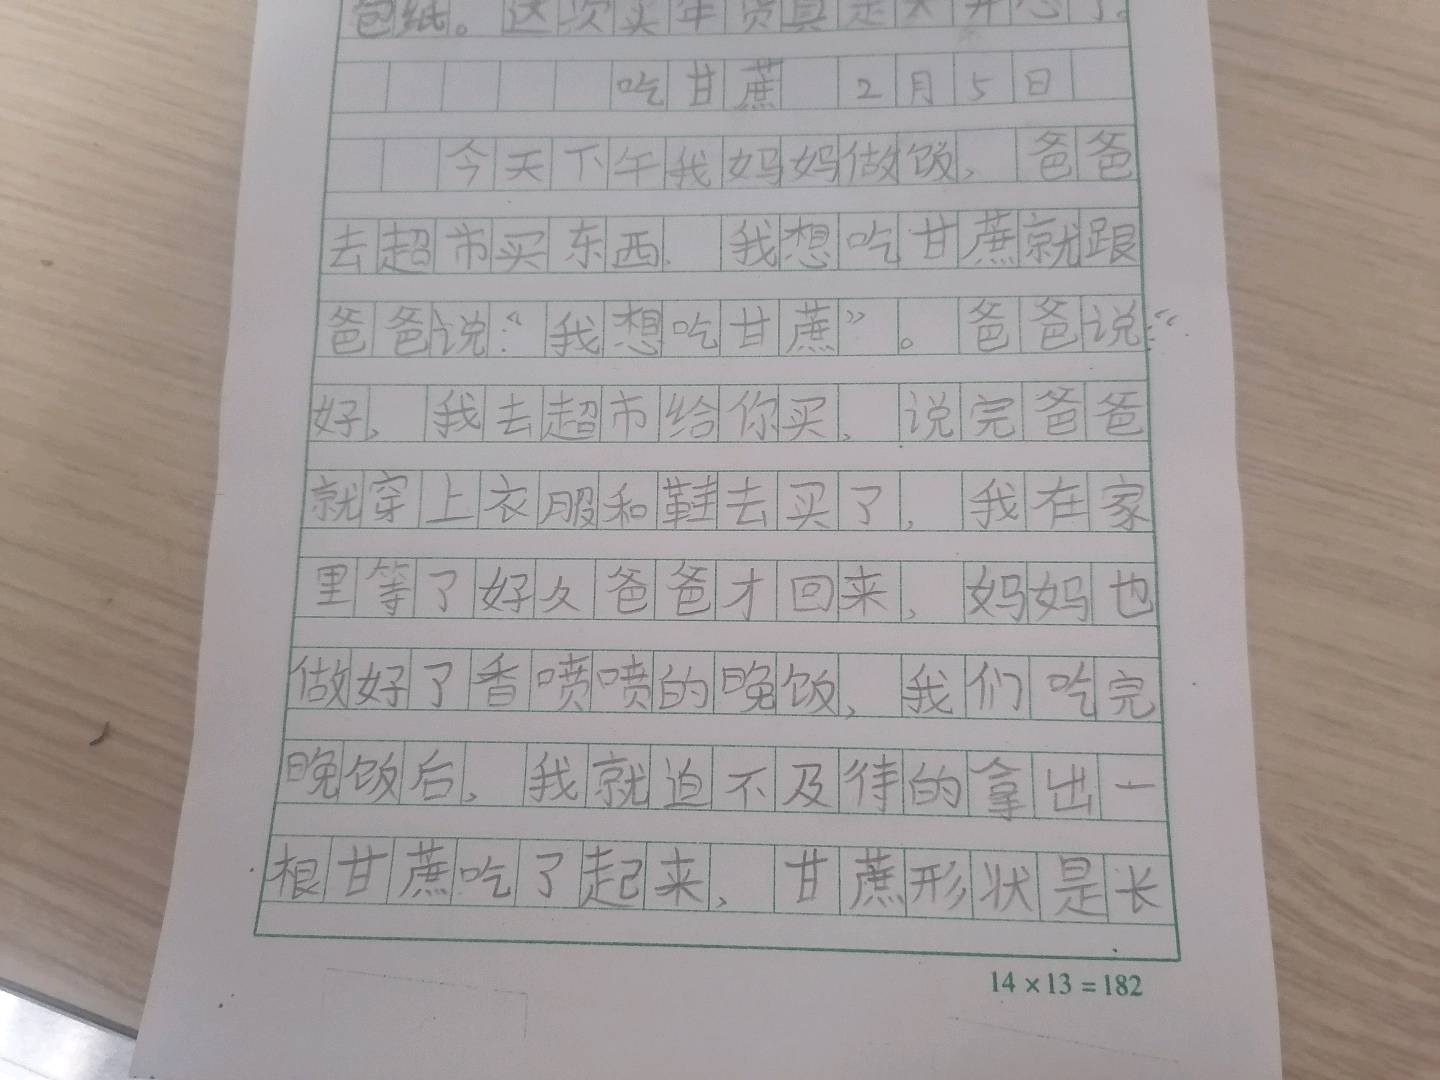 包纸。这次买年货真是太开心了。
吃甘蔗 2月5日
今天下午我妈妈做饭，爸爸
去超市买东西，我想吃甘蔗就跟
爸爸说：“我想吃甘蔗”。爸爸说：“
好，我去超市给你买，说完爸爸
就穿上衣服和鞋去买了，我在家
里等了好久爸爸才回来，妈妈也
做好了香喷喷的晚饭，我们吃完
晚饭后，我就迫不及待的拿出一
根甘蔗吃了起来，甘蔗形状是长
14×13=182